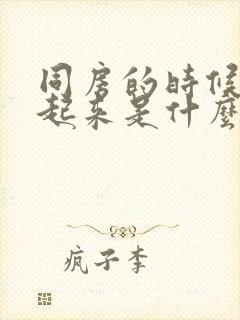 同房的时候
起来是什麽
疯子李